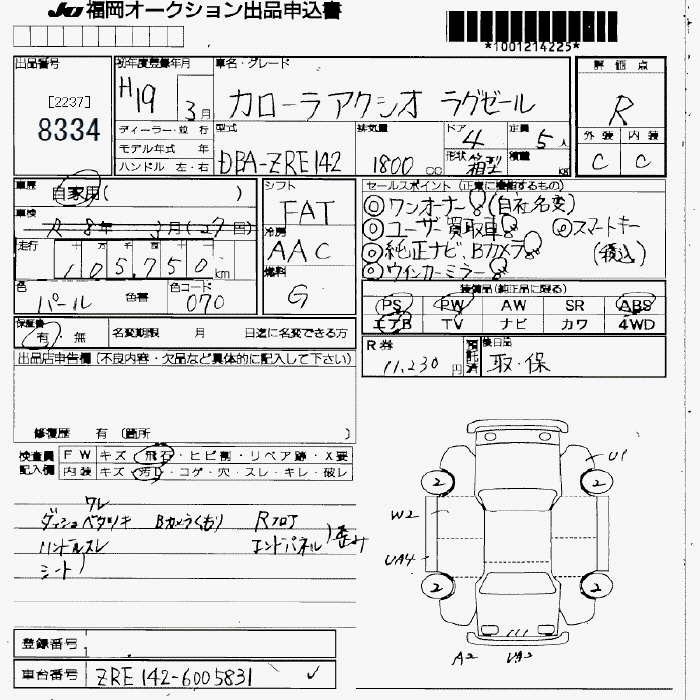 JU 福岡オークション出品申込書
*1001214225*
出品番号
[2237]
8334
初年度登録年月
H19 3月
車名・グレード
カローラアクシオ ラグゼール
評価点
R
外装 内装
C C
ディーラー・並行
モデル年式 年
ハンドル 左・右
型式
DBA-ZRE142
排気量
1800 cc
ドア
4
形状 箱型
定員
5人
積量
kg
車歴
自家用( )
車検
R-8年 3月(27回)
走行
十 万 千 百 十
105,750 km
色
パール
色替
色コード
070
シフト
FAT
冷房
AAC
燃料
G
セールスポイント(正常に機能するもの)
◎ワンオーナー(自社名変)
◎ユーザー買取車 ◎スマートキー
◎純正ナビ、Bカメラ (税込)
◎ウインカーミラー
装備品(純正品に限る)
PS PW AW SR ABS
エアB TV ナビ カワ 4WD
保証書
有・無
名変期限 月 日迄に名変できる方
R券
11,230円
預託済
後日品
取・保
出品店申告欄(不良内容・欠品など具体的に記入して下さい)
修復歴 有 (箇所 )
検査員記入欄
FW キズ・飛石・ヒビ割・リペア跡・X要
内装 キズ・汚れ・コゲ・穴・スレ・キレ・破レ
ワレ
ダッシュベタツキ Bカメラくもり Rフロア
ハンドルスレ エンドパネル 歪み
シート
U1
2 2
W2
UA4
2 2
A2
登録番号
車台番号
ZRE142-6005831